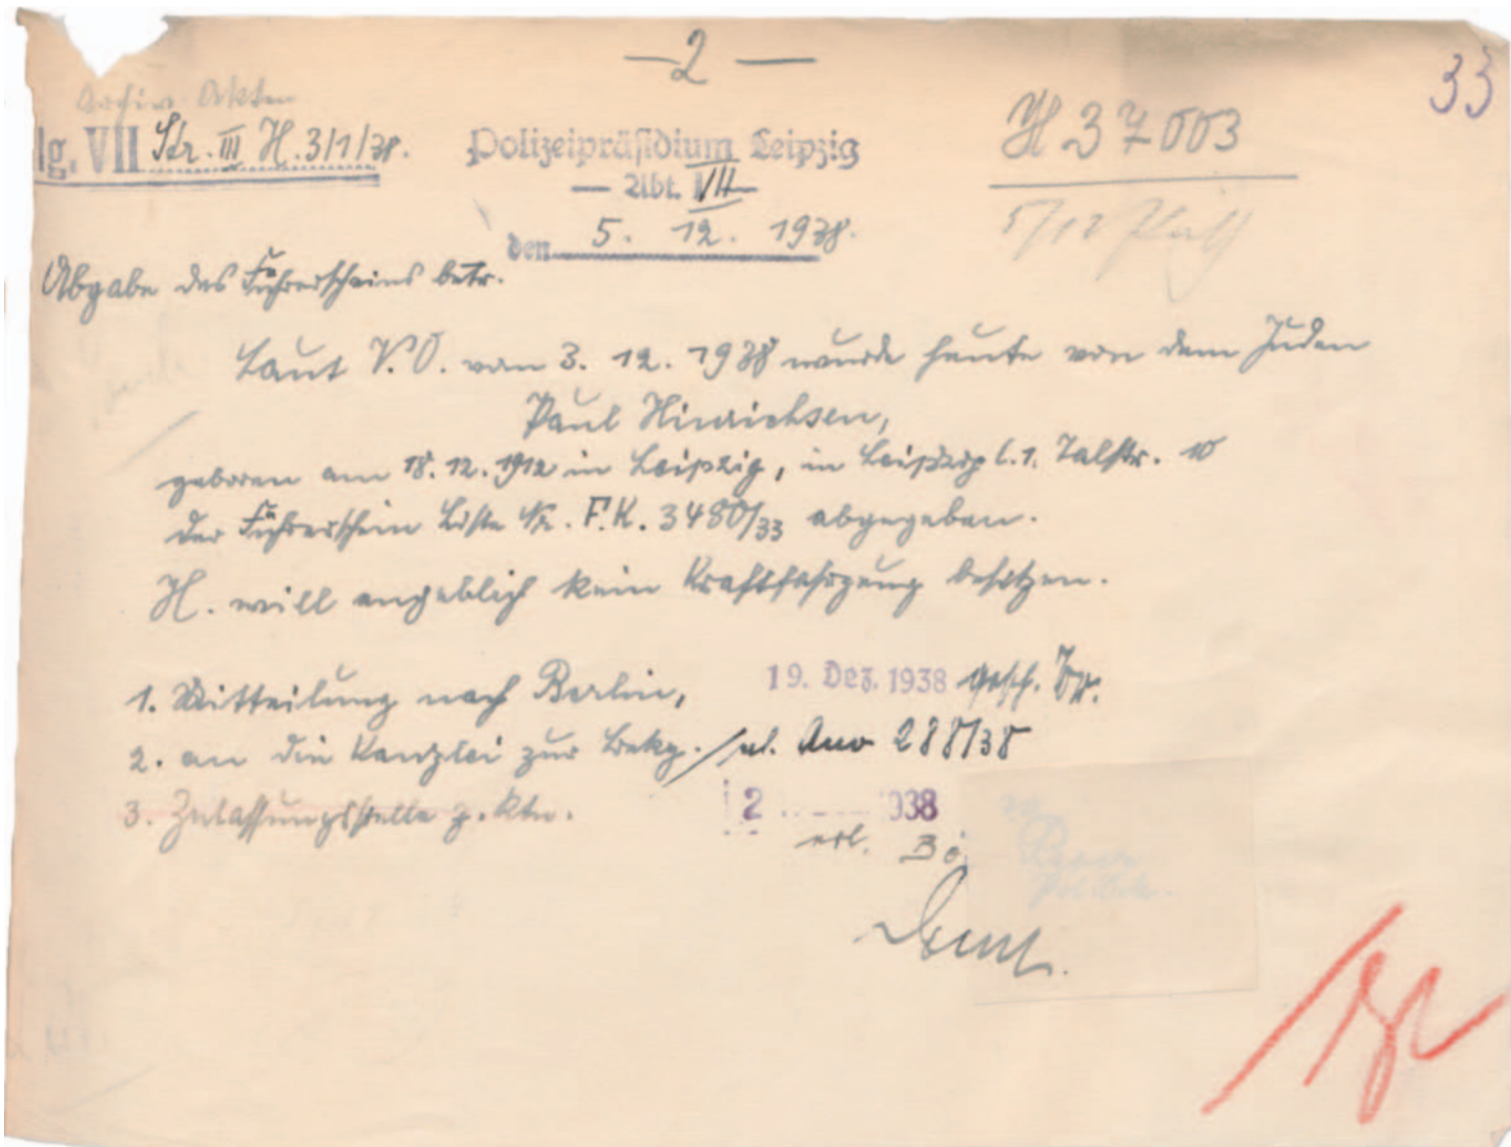 — 2 —
33
Archiv Akten
lg. VII Str. III H. 3/1/38.
Polizeipräsidium Leipzig
H 37003
— Abt. VII —
5/12
den 5. 12. 1938.
Abgabe des Führerscheins betr.
Laut V.O. vom 3. 12. 1938 wurde heute von dem Juden
Paul Hinrichsen,
geboren am 18.12.1912 in Leipzig, in Leipzig C.1. Talstr. 10
der Führerschein Liste Nr. F.K. 3480/33 abgegeben.
H. will angeblich kein Kraftfahrzeug besitzen.
1. Mitteilung nach Berlin,
19. Dez. 1938 gesch.
2. an die Kanzlei zur
288/38
3. Zulassungsstelle z. Ktn.
2 1938
erl.